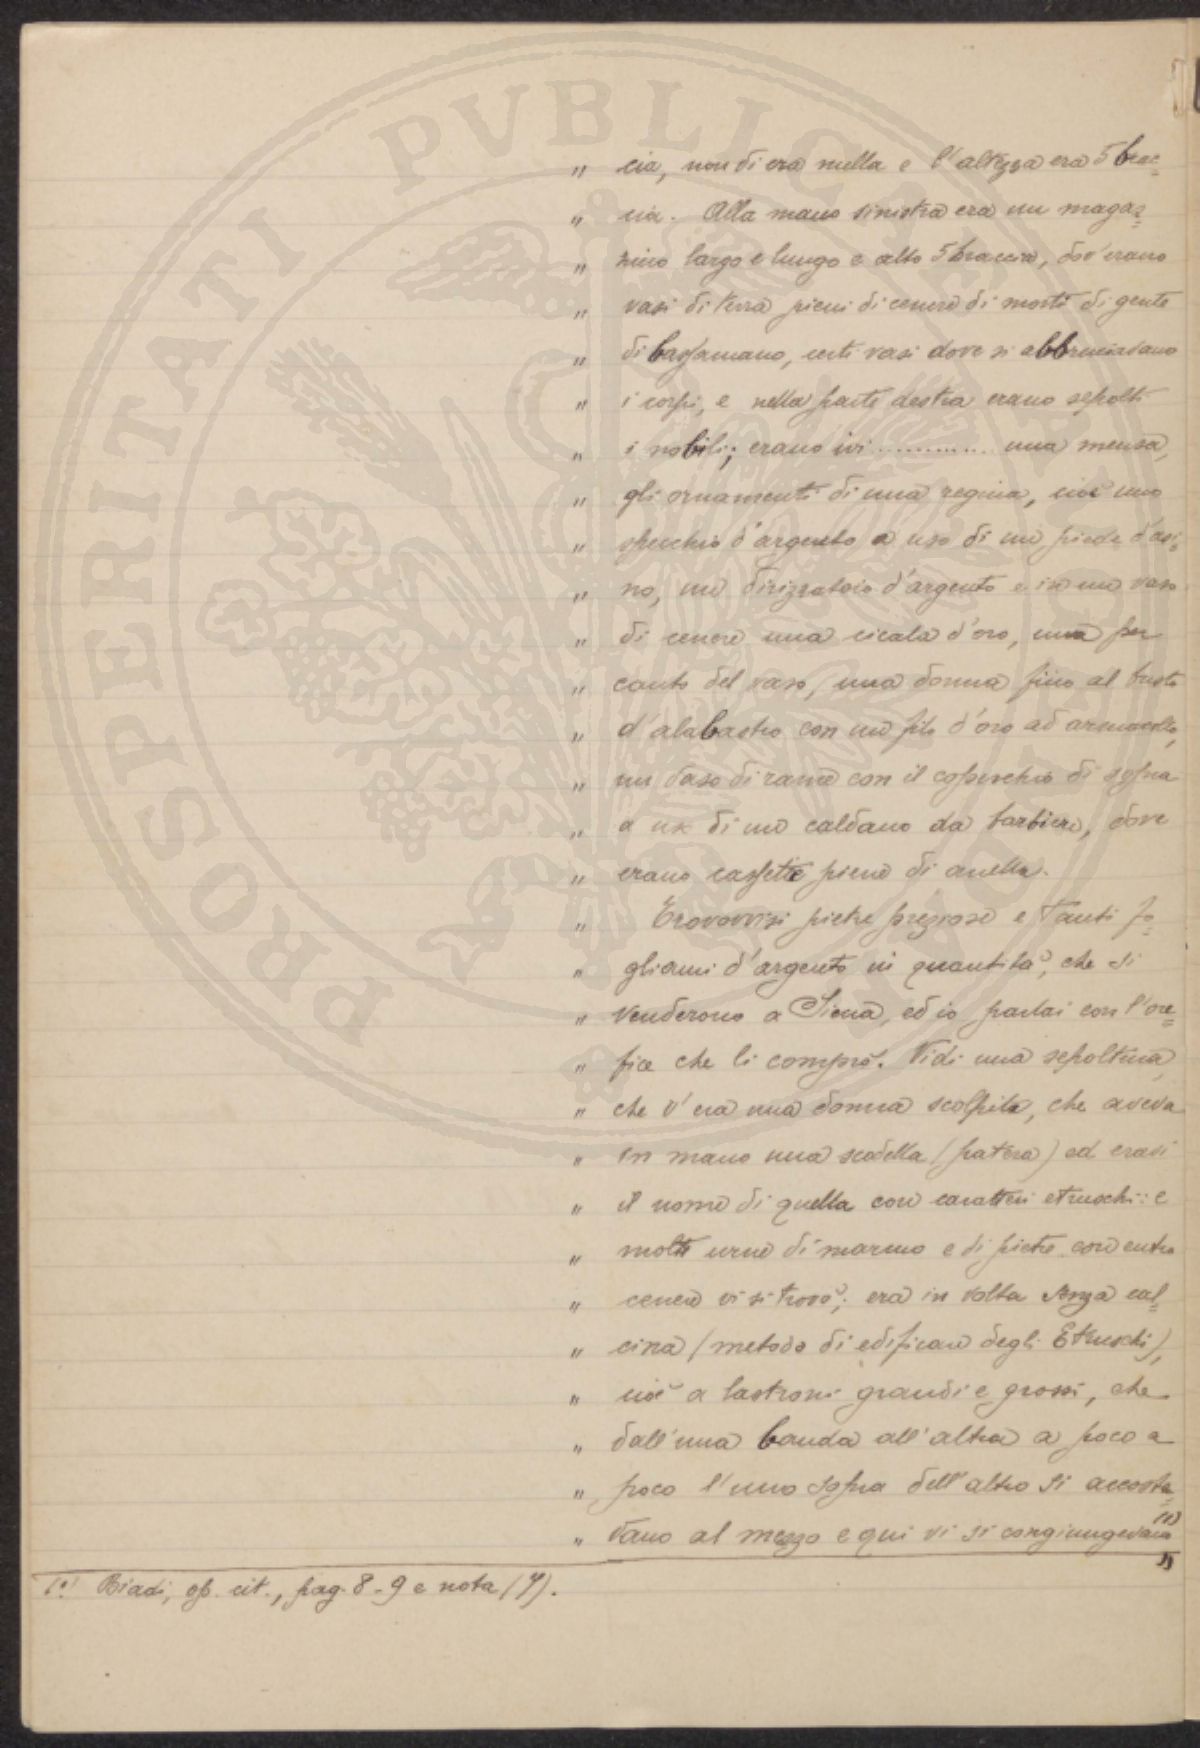 " cia, non di era nulla e l'altezza era 5 brac=
" cia. Alla mano sinistra era un magaz=
" zino largo e lungo e alto 5 braccia, dov'erano
" vasi di terra pieni di cenere di morti di gente
" di bassamano, certi vasi dove si abbruciavano
" i corpi, e nella parte destra erano sepolti
" i nobili; erano ivi ............ una mensa,
" gli ornamenti di una regina, cioè uno
" specchio d'argento a uso di un piede d'asi=
" no, un dirizzatoio d'argento e in un vaso
" di cenere una cicala d'oro, una per
" canto del vaso, una donna fino al busto
" d'alabastro con un filo d'oro ad armacollo,
" un vaso di rame con il coperchio di sopra
" a uso di un caldano da barbiere, dove
" erano cassette piene di anella.
" Trovovvisi pietre preziose e tanti fo=
" gliami d'argento in quantità, che si
" venderono a Siena, ed io parlai con l'ore=
" fice che li comprò. Vidi una sepoltura,
" che v'era una donna scolpita, che aveva
" in mano una scodella (patera) ed eravi
" il nome di quella con caratteri etruschi: e
" molte urne di marmo e di pietre con entro
" cenere vi si trovò; era in volta senza cal=
" cina (metodo di edificare degli Etruschi),
" cioè a lastroni grandi e grossi, che
" dall'una banda all'altra a poco a
" poco l'uno sopra dell'altro si accosta=
" vano al mezzo e qui vi si congiungevano (1) "
(1) Biadi, op. cit., pag. 8-9 e nota (4).
PROSPERITATI PVBLICAE